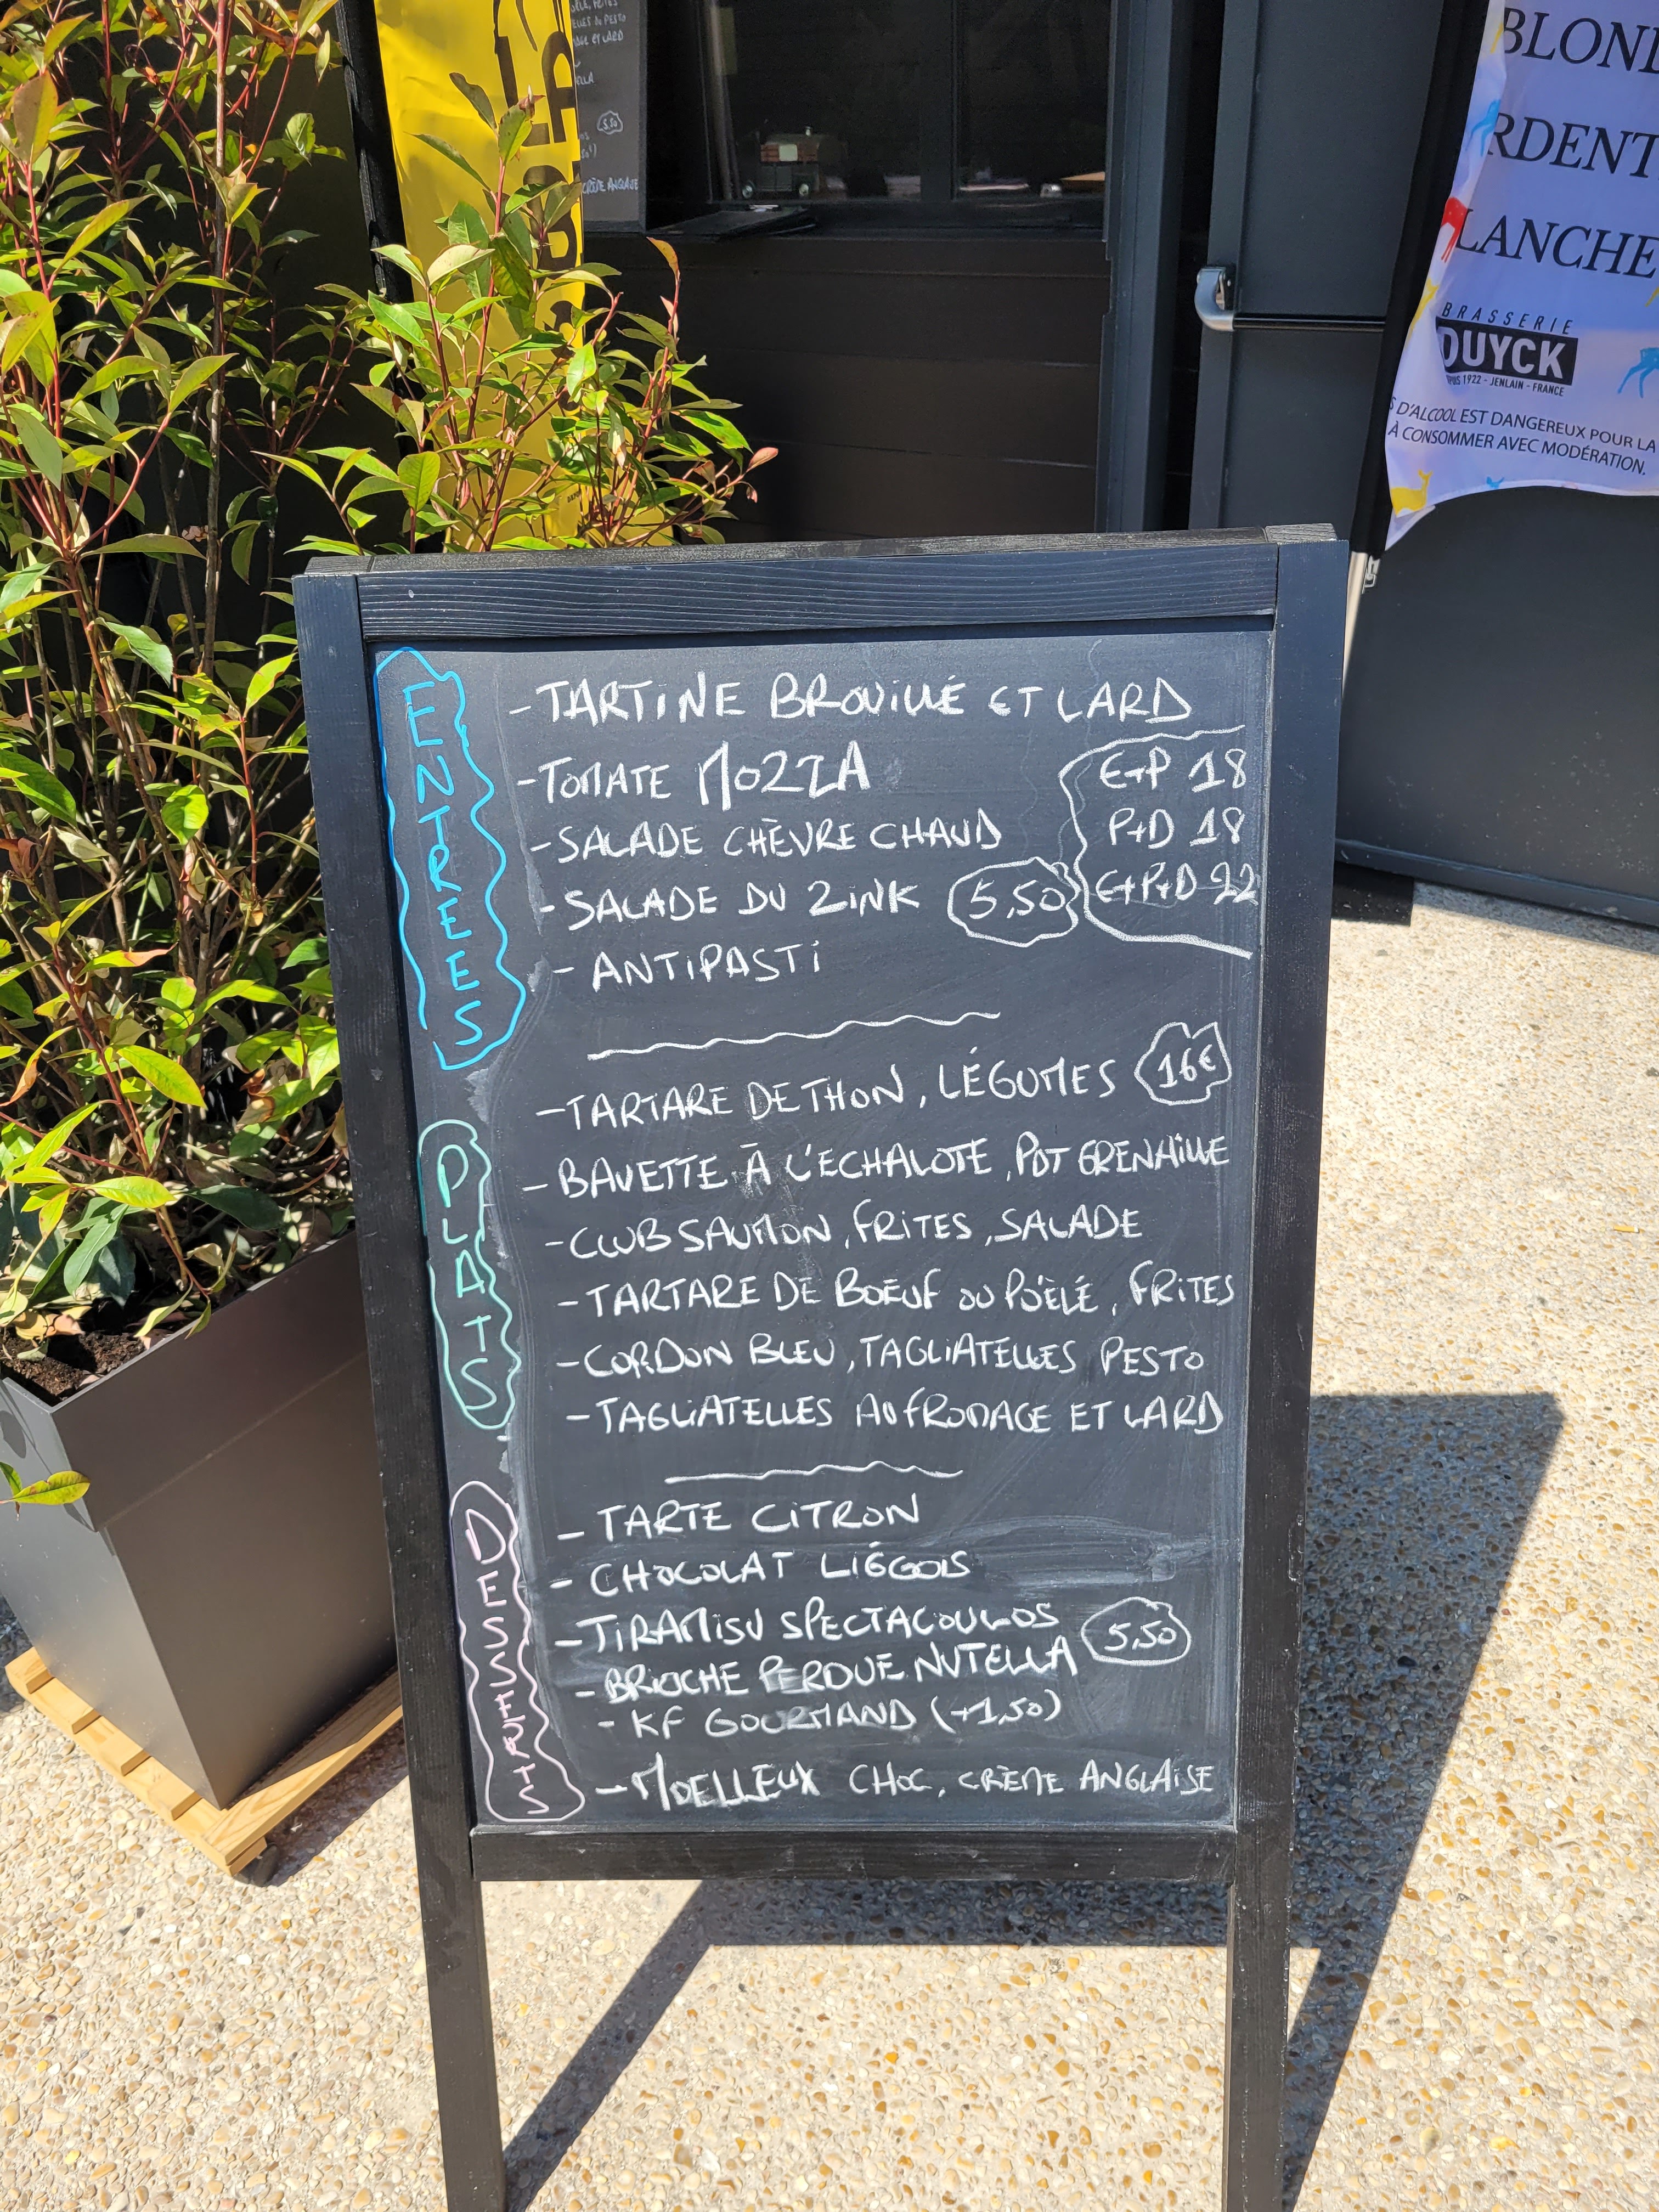 ÈLE, FRITES
ELLES AU PESTO
AGE ET LARD
ELLA
5.50
CRÈME ANGLAISE
BLOND
RDENT
LANCHE
BRASSERIE
DUYCK
PUIS 1922 - JENLAIN - FRANCE
S D'ALCOOL EST DANGEREUX POUR LA
À CONSOMMER AVEC MODÉRATION.
ENTREES
- TARTINE BROUILLÉ ET LARD
- TOMATE MOZZA
E+P 18
- SALADE CHÈVRE CHAUD
P+D 18
- SALADE DU ZINK 5,50
E+P+D 22
- ANTIPASTI
PLATS
- TARTARE DE THON, LÉGUMES 16€
- BAVETTE À L'ECHALOTE, PDT GRENAILLE
- CLUB SAUMON, FRITES, SALADE
- TARTARE DE BOEUF OU POÊLÉ, FRITES
- CORDON BLEU, TAGLIATELLES PESTO
- TAGLIATELLES AU FROMAGE ET LARD
DESSERTS
- TARTE CITRON
- CHOCOLAT LIÉGOIS
- TIRAMISU SPECTACOULOS
5,50
- BRIOCHE PERDUE NUTELLA
- KF GOURMAND (+1,50)
- MOELLEUX CHOC, CRÈME ANGLAISE